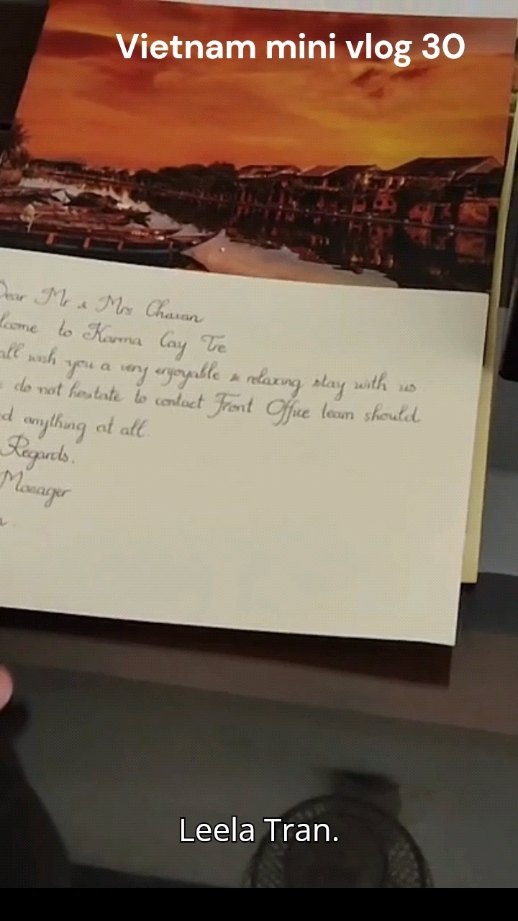 Vietnam mini vlog 30
Dear Mr & Mrs Chavan
lcome to Karma Cay Tre
all wish you a very enjoyable & relaxing stay with us
do not hesitate to contact Front Office team should
d anything at all.
Regards.
Manager
Leela Tran.